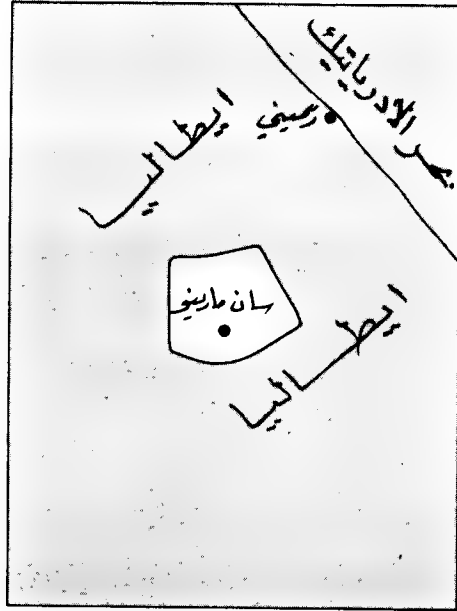 بحر الادرياتيك
ريميني
ايطاليا
سان مارينو
ايطاليا